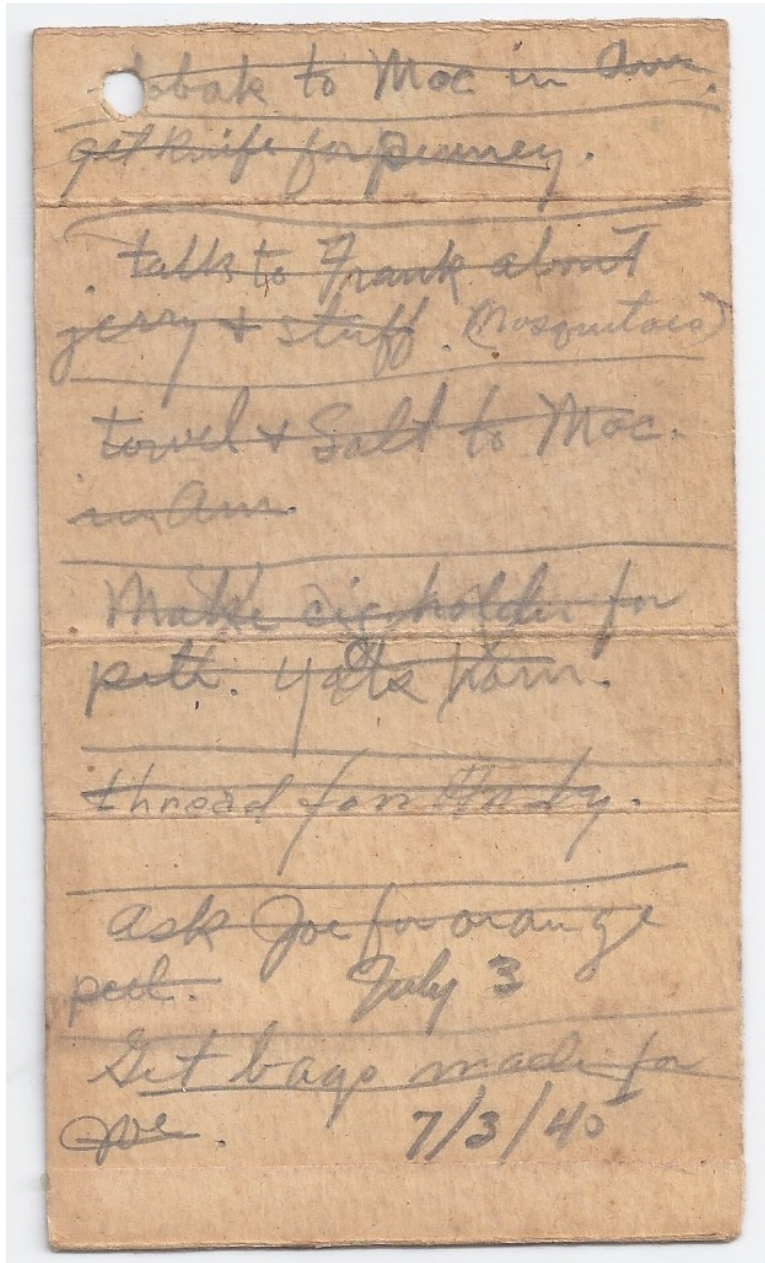 tobak to Moc in Am.
get knife for penney.
talk to Frank about
jerry & stuff. (Mosquitoes)
towel & Salt to Moc.
in Am.
Make cig holder for
pett.
thread for Andy.
ask Joe for orange
peel. July 3
Get bags made for
Joe. 7/3/45